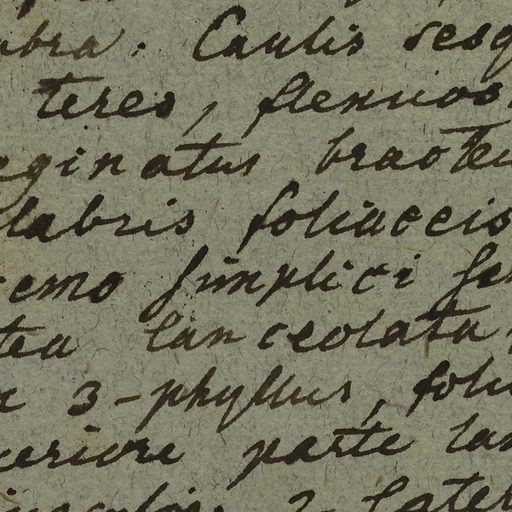 abra. Caulis sesq
teres, flexuos
aginatus bracte
labris foliaceis
remo simplici
tea lanceolata
3-phyllus, foli
eriore parte lan
2